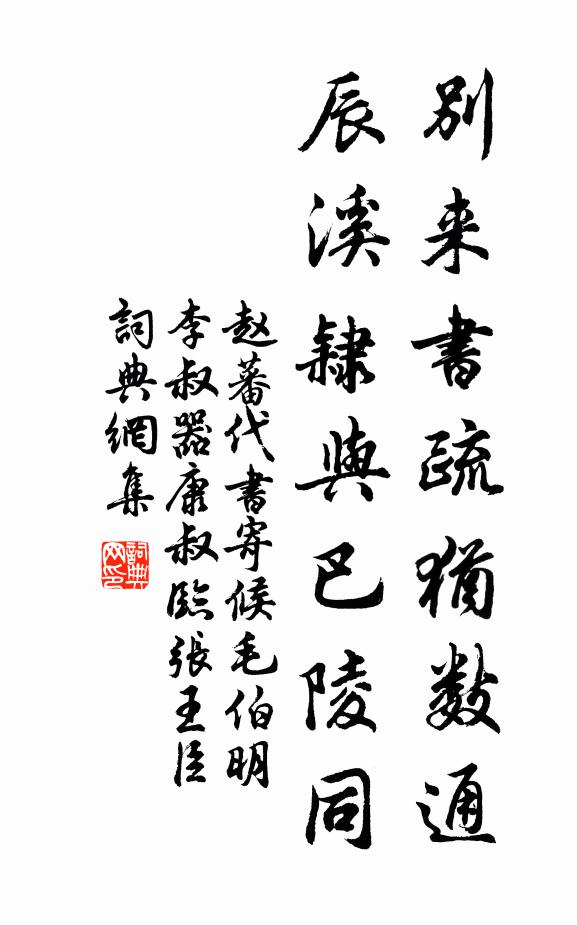 别来書疏猶数通
辰溪隸與巴陵同
赵蕃代書寄候毛伯明
李叔器康叔臨張王臣
詞典網集
詞典
网印